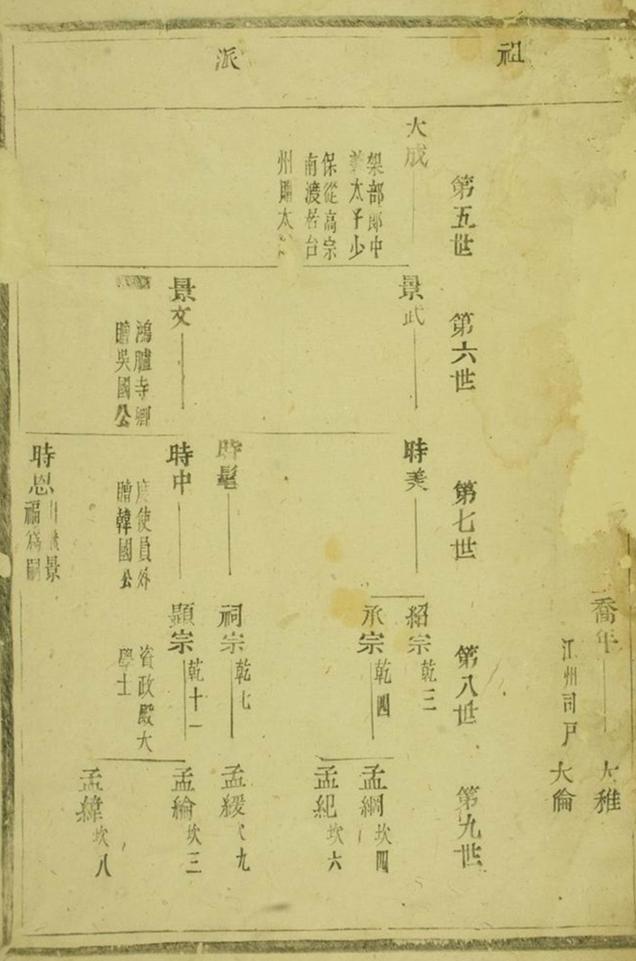 祖
派
喬年
江州司戶
大稚
大倫
第五世
第六世
第七世
第八世
第九世
大成
架部郎中
太子少
保從高宗
南渡居台
州贈太
景武
景文
鴻臚寺卿
贈吳國公
時美
時髦
時中
使員外
贈韓國公
時恩
景
福為嗣
紹宗
乾三
承宗
乾四
祠宗
乾七
顯宗
乾十一
資政殿大
學士
孟綱
坎四
孟紀
坎六
孟緩
九
孟綸
坎三
孟緯
坎八